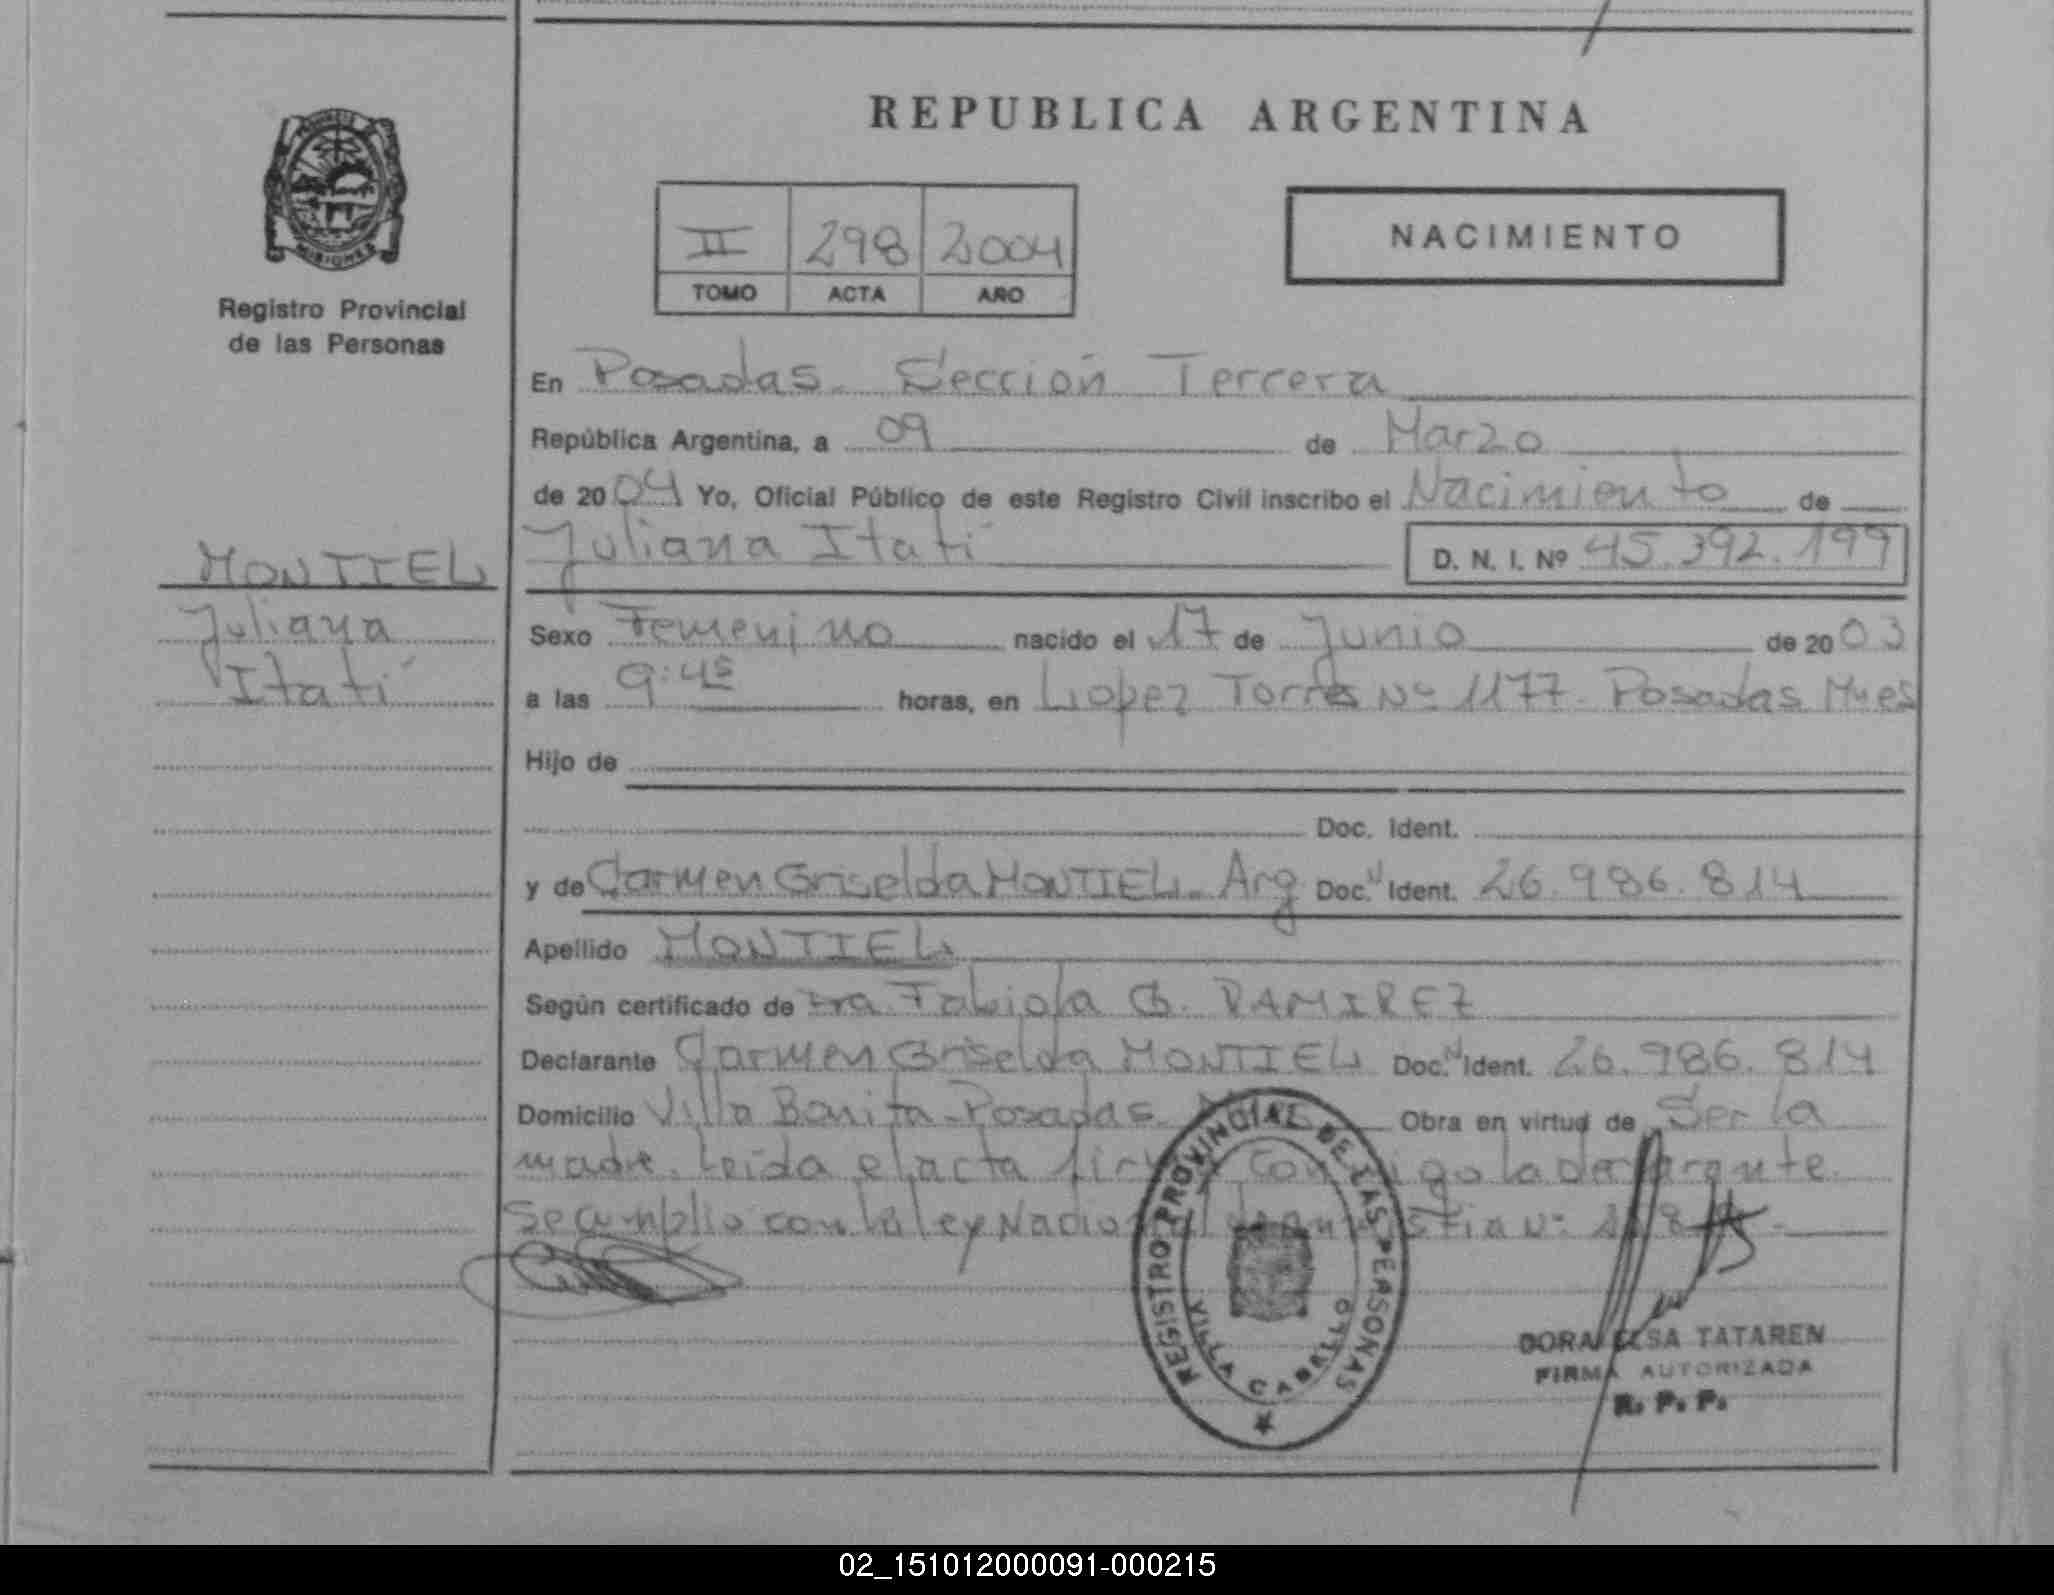 REPUBLICA ARGENTINA
PROVINCIA DE
MISIONES
Registro Provincial
de las Personas
II 298 2004
TOMO ACTA AÑO
NACIMIENTO
En Posadas. Sección Tercera
República Argentina, a 09 de Marzo
de 2004 Yo, Oficial Público de este Registro Civil inscribo el Nacimiento de
Juliana Itatí D. N. I. Nº 45.392.199
MONTIEL
Juliana
Itatí
Sexo Femenino nacido el 17 de Junio de 2003
a las 9:45 horas, en Lopez Torres Nº 1177. Posadas Mnes
Hijo de
Doc. Ident.
y de Carmen Griselda MONTIEL. Arg Doc. Ident. 26.986.814
Apellido MONTIEL
Según certificado de Dra. Fabiola G. RAMIREZ
Declarante Carmen Griselda MONTIEL Doc. Ident. 26.986.814
Domicilio Villa Bonita - Posadas Obra en virtud de Ser la
madre. Leída el acta firma conmigo la declarante.
Se cumplio con la ley Nacional de amnistia Nº
REGISTRO PROVINCIAL DE LAS PERSONAS
VILLA CABELLO
DORA ELSA TATAREN
FIRMA AUTORIZADA
R. P. P.
02_151012000091-000215